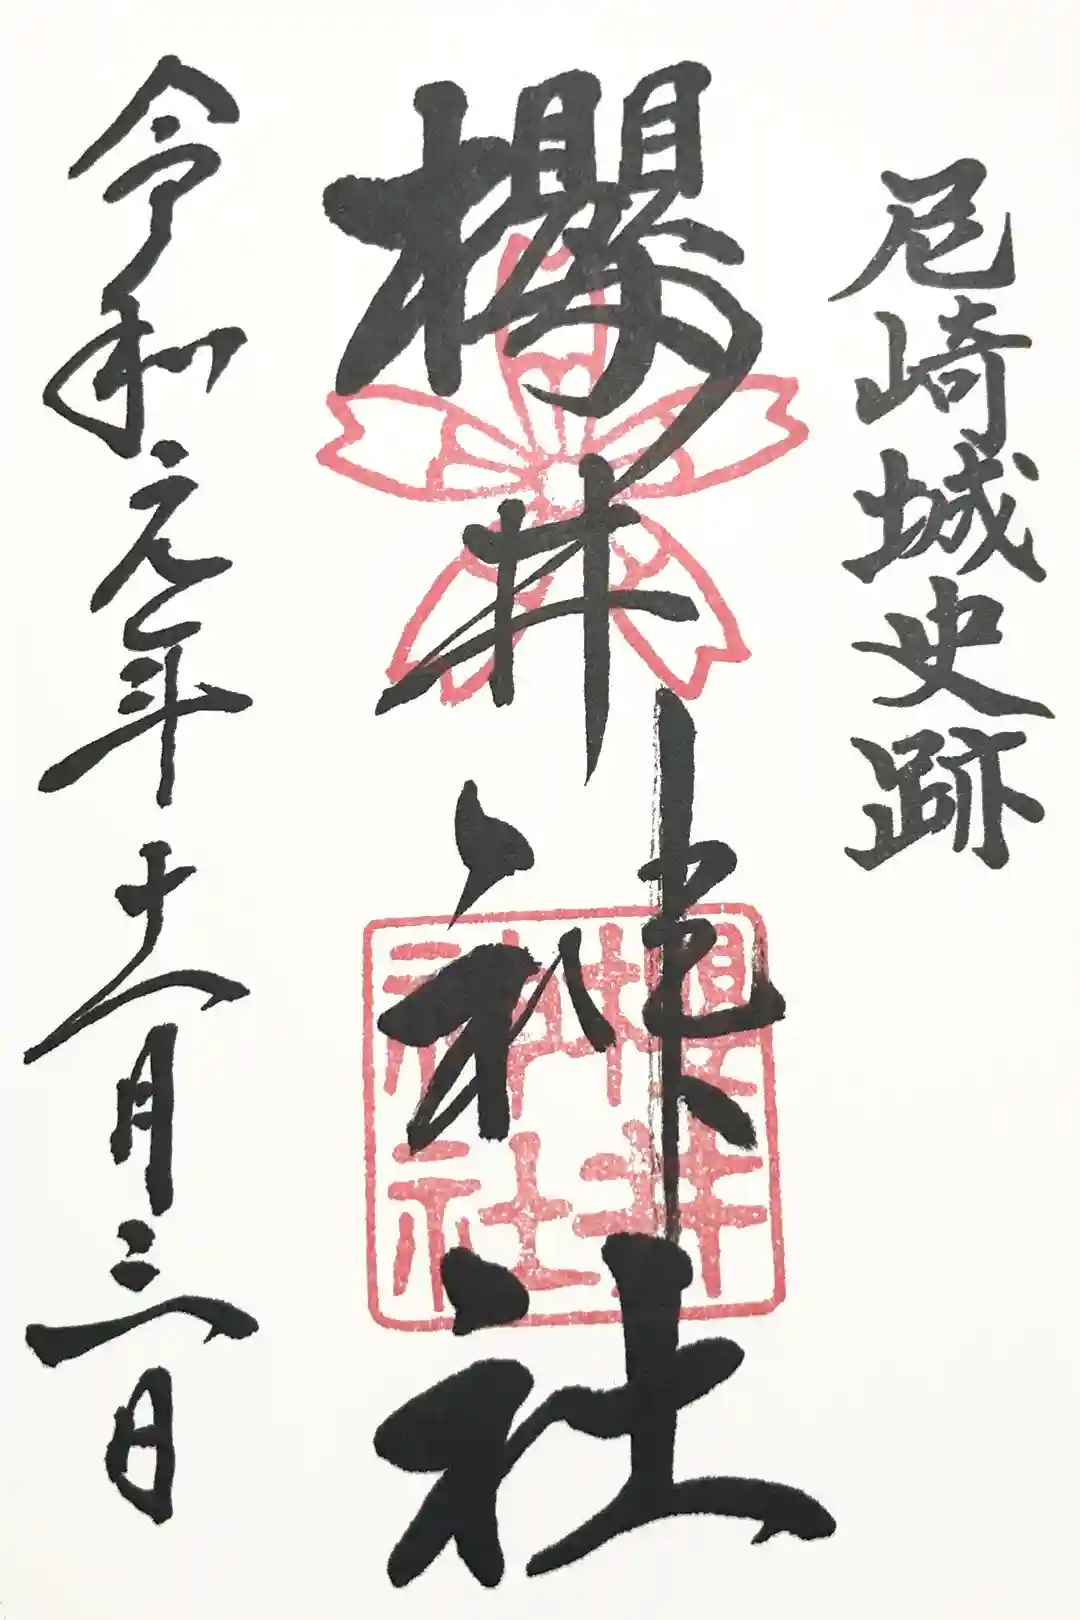 尼崎城史跡
櫻井神社
櫻井
神社
令和元年十一月三日